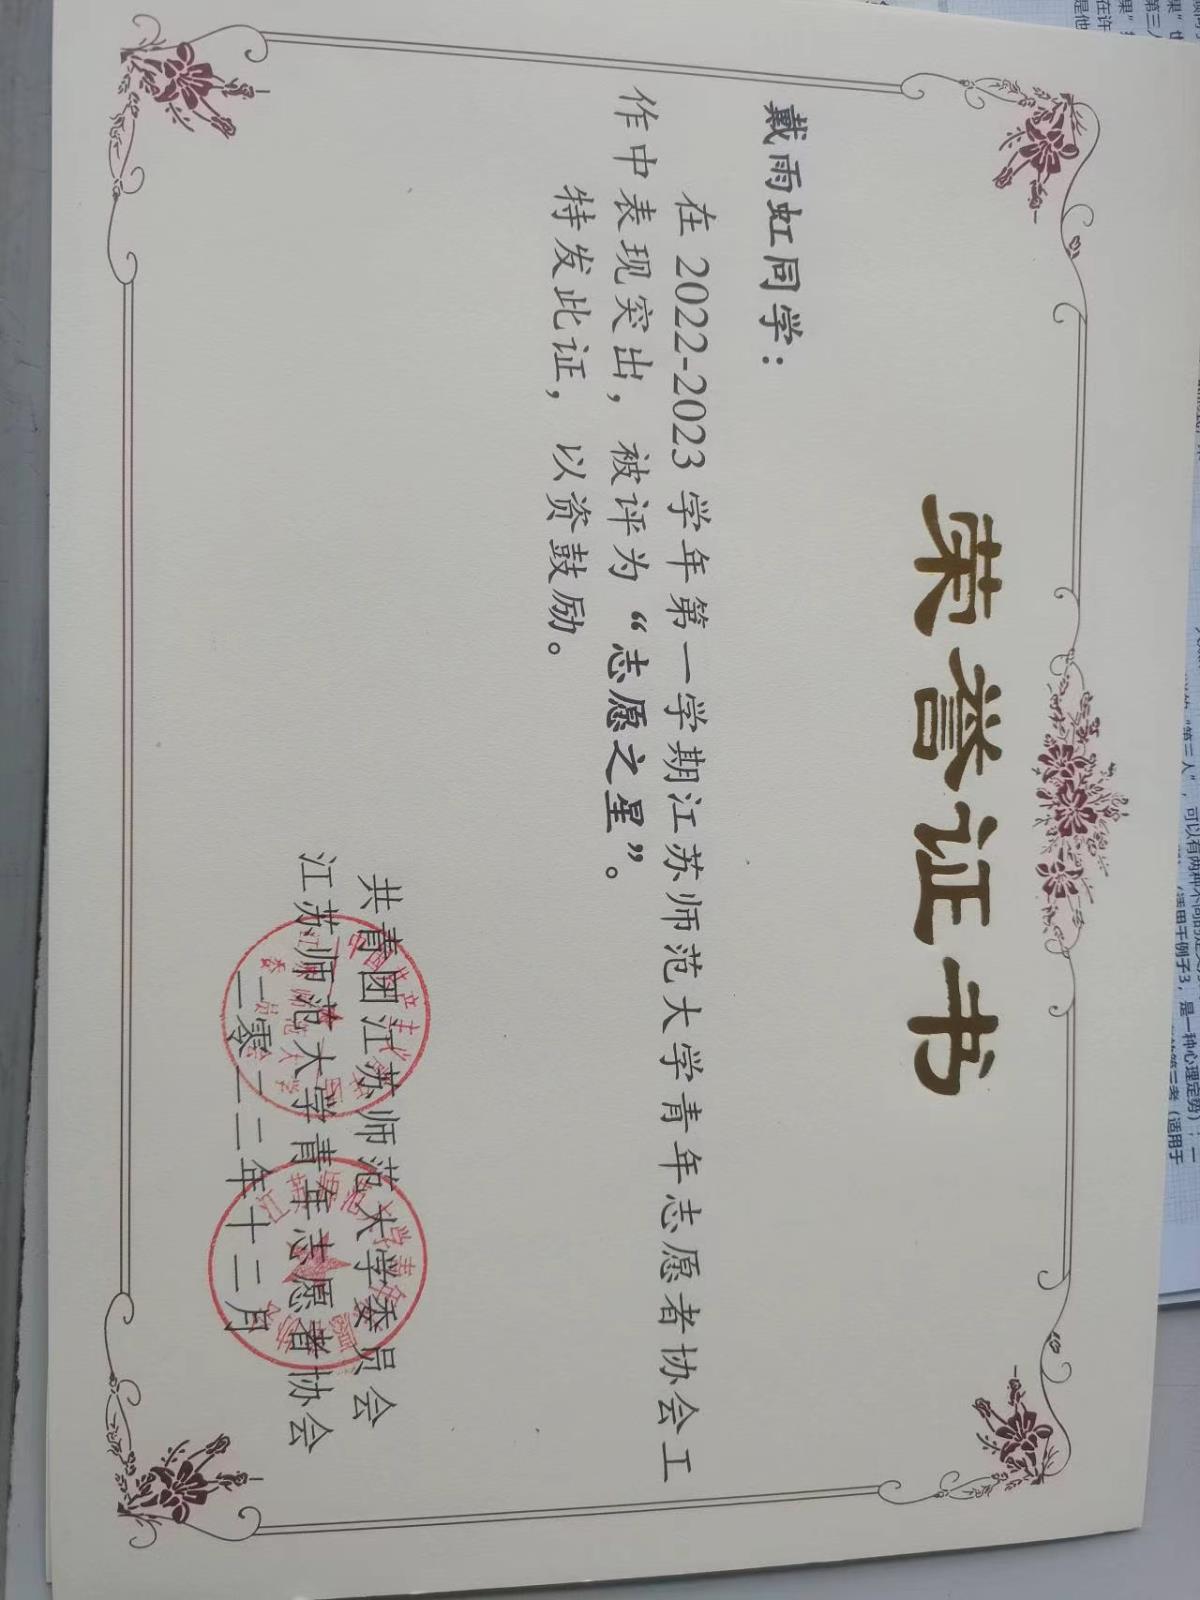 荣誉证书
戴雨虹同学：
在 2022-2023 学年第一学期江苏师范大学青年志愿者协会工
作中表现突出，被评为“志愿之星”。
特发此证，以资鼓励。
共青团江苏师范大学委员会
江苏师范大学青年志愿者协会
二零二二年十二月